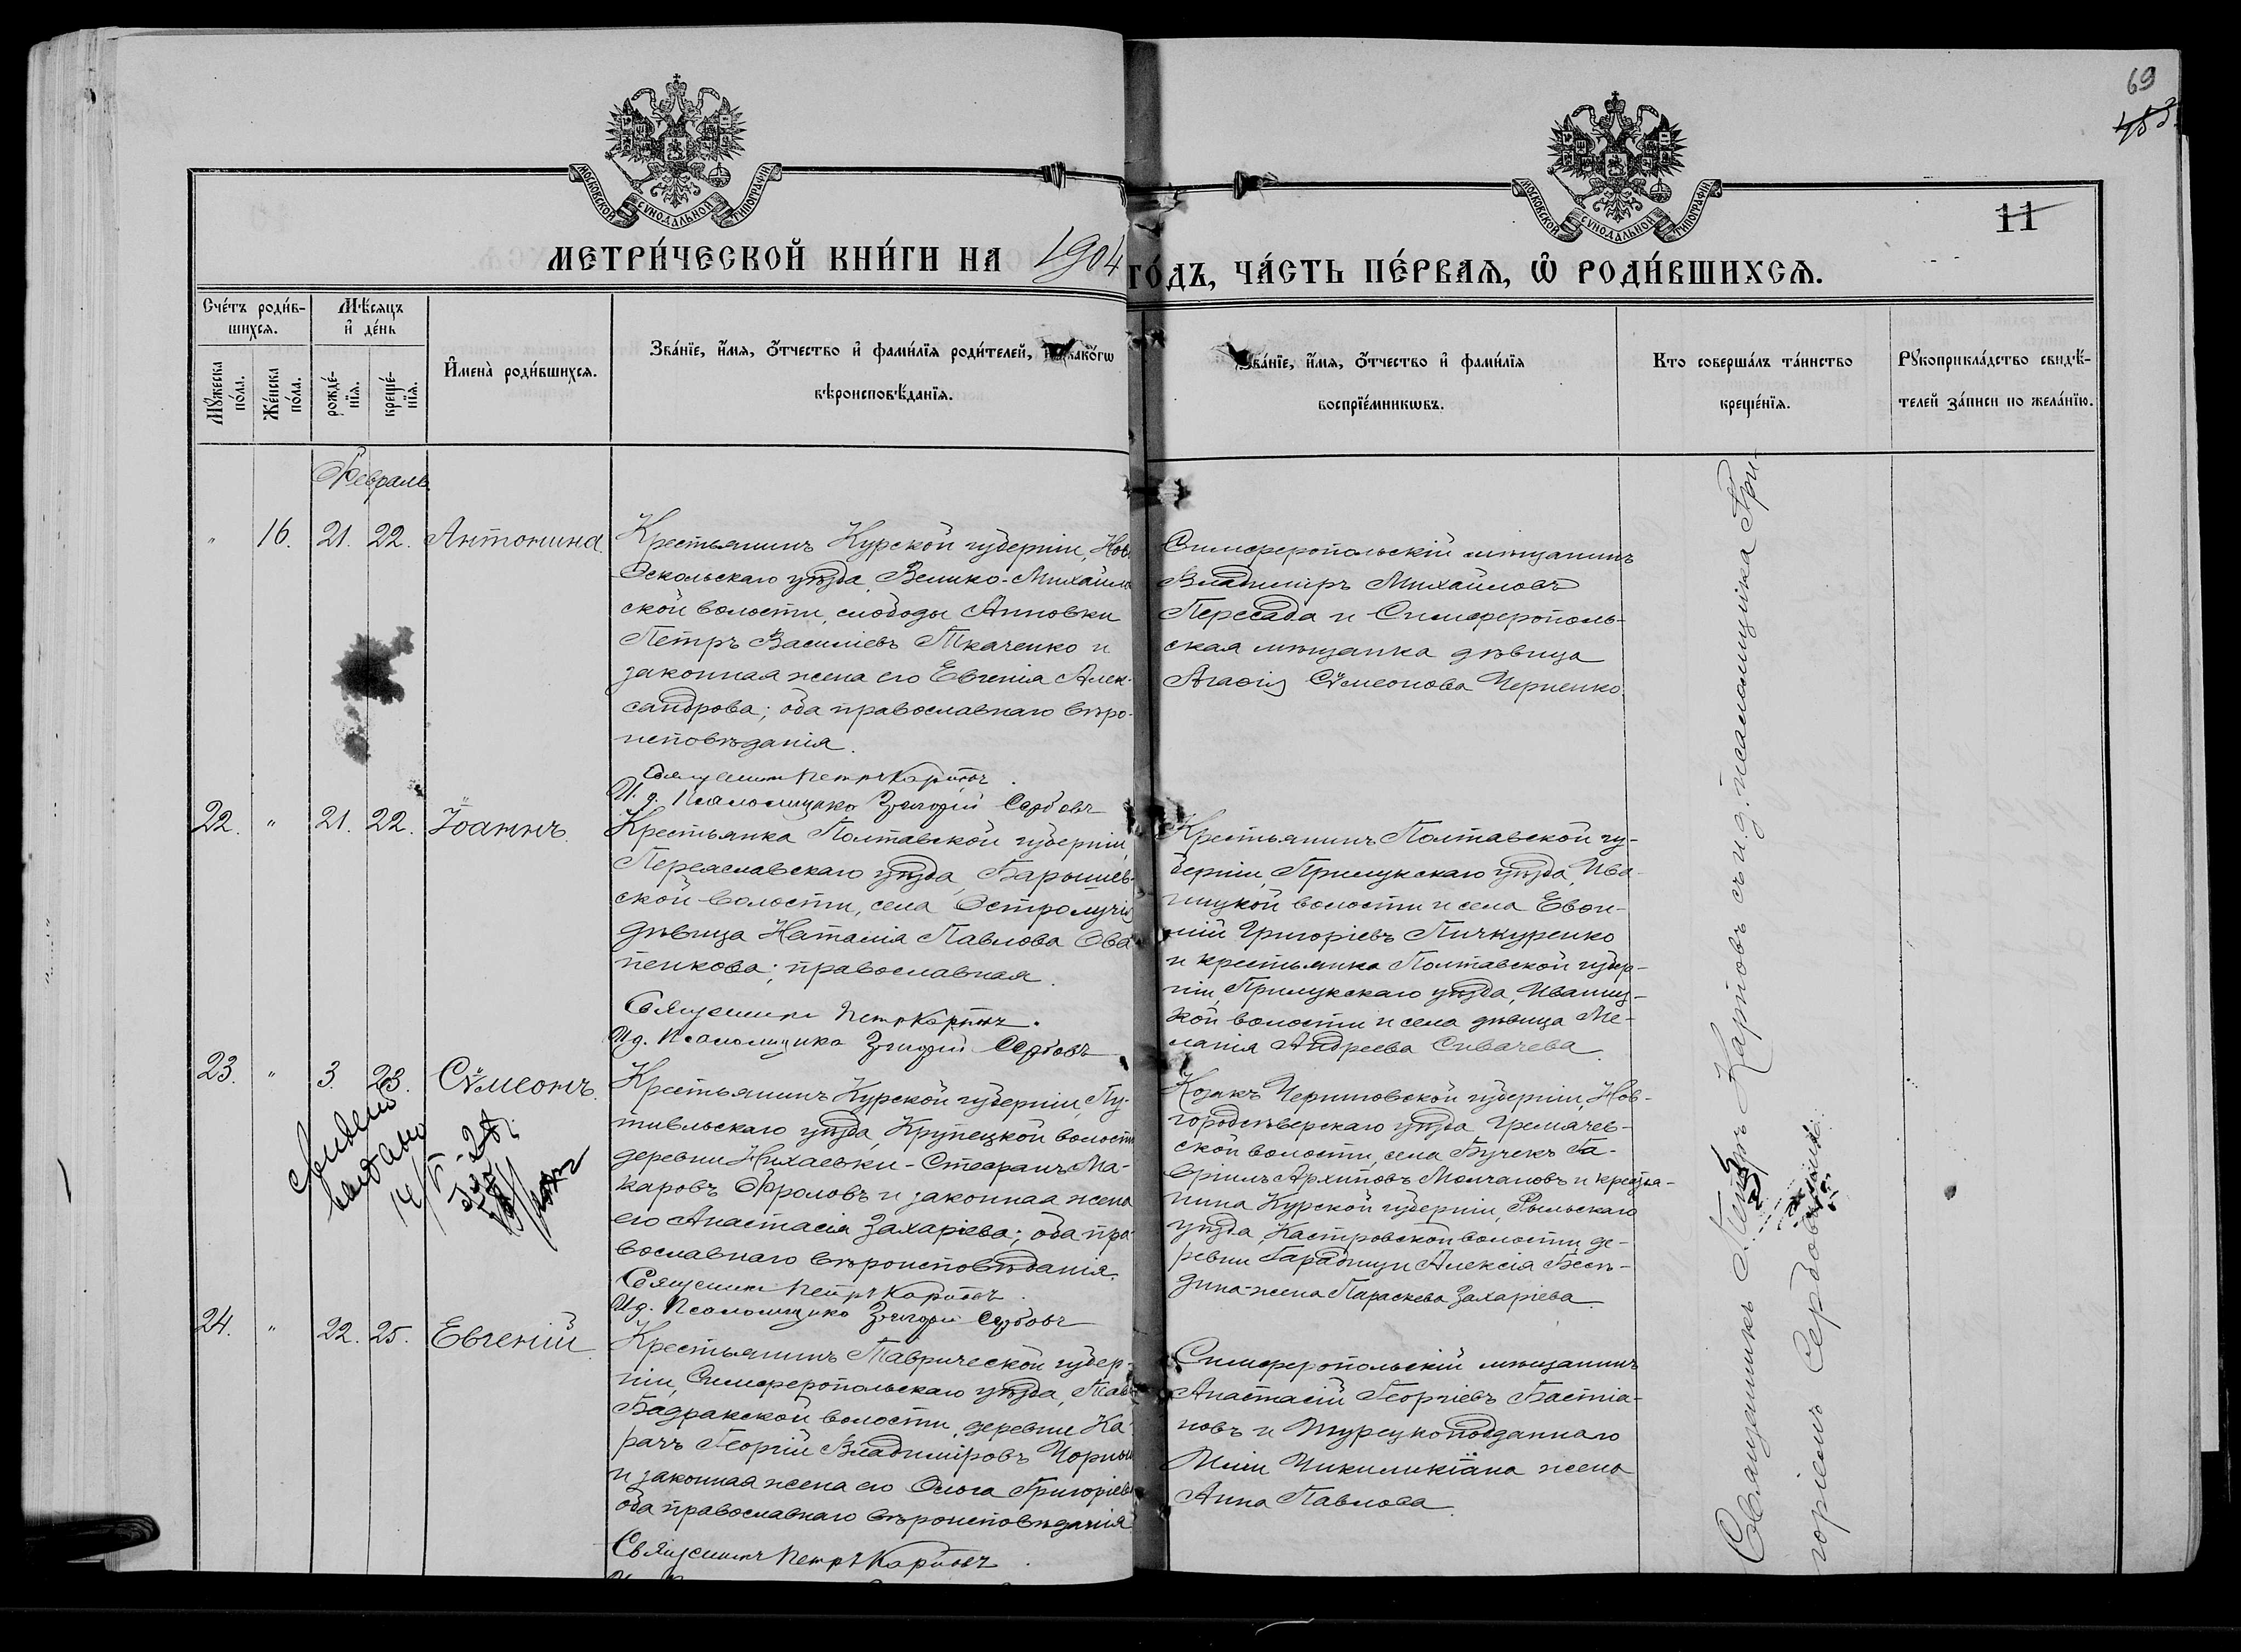 69
453.
11
МОСКОВСКОЙ СѴНОДАЛЬНОЙ ТИПОГРАФІИ
МОСКОВСКОЙ СѴНОДАЛЬНОЙ ТИПОГРАФІИ
МЕТРИ́ЧЕСКОЙ КНИ́ГИ НА 1904
ГО́ДЪ, ЧА́СТЬ ПЕ́РВАѦ, Ѡ҆ РОДИ́ВШИХСѦ.
Сче́тъ роди́в-
шихсѧ.
Мѣ́сѧцъ
и҆ де́нь
Мꙋ́жеска
по́ла.
Же́нска
по́ла.
рожде́-
нїѧ.
креще́-
нїѧ.
И҆мена̀ роди́вшихсѧ.
Зва́нїе, и҆́мѧ, ѻ҆́тчество и҆ фами́лїѧ роди́телей, како́гѡ
вѣроисповѣ́данїѧ.
Зва́нїе, и҆́мѧ, ѻ҆́тчество и҆ фами́лїѧ
воспрїе́мникѡвъ.
Кто соверша́лъ та́инство
креще́нїѧ.
Рꙋкоприкла́дство свидѣ́-
телей за́писи по жела́нїю.
Февраль.
" 16. 21. 22. Антонина.
Крестьянинъ Курской губерніи, Ново-
Оскольскаго уѣзда, Велико-Михайлов
ской волости, слободы Анновки
Петръ Василіевъ Ткаченко и
законная жена его Евгенія Алек-
сандрова; оба православнаго вѣро-
исповѣданія.
Священникъ Петръ Карповъ.
И. д. Псаломщика Григорій Сербовъ
Симферопольскій мѣщанинъ
Владиміръ Михайловъ
Пересада и Симферополь-
ская мѣщанка дѣвица
Агафія Сѵмеонова Черненко.
22. " 21. 22. Іоаннъ.
Крестьянка Полтавской губерніи,
Переяславскаго уѣзда, Барышев-
ской волости, села Остролучія
дѣвица Наталія Павлова Ова-
пенкова; православная.
Священникъ Петръ Карповъ.
И д. Псаломщика Григорій Сербовъ
Крестьянинъ Полтавской гу-
берніи, Прилукскаго уѣзда, Ива-
ницкой волости и села Евфи-
мій Григоріевъ Пичкуренко
и крестьянка Полтавской губер-
ніи, Прилукскаго уѣзда, Иваниц-
кой волости и села дѣвица Ме-
ланія Андреева Сивачева.
23. " 3. 23. Сѵмеонъ.
выдано
Крестьянинъ Курской губерніи, Пу-
тивльскаго уѣзда, Крупецкой волости
деревни Нихаевки - Стефанъ Ма-
каровъ Фроловъ и законная жена
его Анастасія Захаріева; оба пра-
вославнаго вѣроисповѣданія.
Священникъ Петръ Карповъ.
И д. Псаломщика Григорій Сербовъ
Козакъ Черниговской губерніи, Нов-
городсѣверскаго уѣзда Гремячев-
ской волости, села Бучекъ Га-
вріилъ Архиповъ Молчановъ и крестья-
нина Курской губерніи, Рыльскаго
уѣзда, Кастровской волости, де-
ревни Гарадищи Алексія Бесѣ-
дина-жена Параскева Захаріева.
24. " 22. 25. Евгеній.
Крестьянинъ Таврической губер-
ніи, Симферопольскаго уѣзда, Тав-
Бадракской волости, деревни Ка-
рачъ Георгій Владиміровъ Чорный
и законная жена его Ольга Григоріева
оба православнаго вѣроисповѣданія
Священникъ Петръ Карповъ.
Симферопольскій мѣщанинъ
Анастасій Георгіевъ Бастіа-
новъ и Турецкоподданнаго
Иліи Чикиликіана жена
Анна Павлова.
Священникъ Петръ Карповъ съ и. д. псаломщика Гри-
горіемъ Сербовымъ.